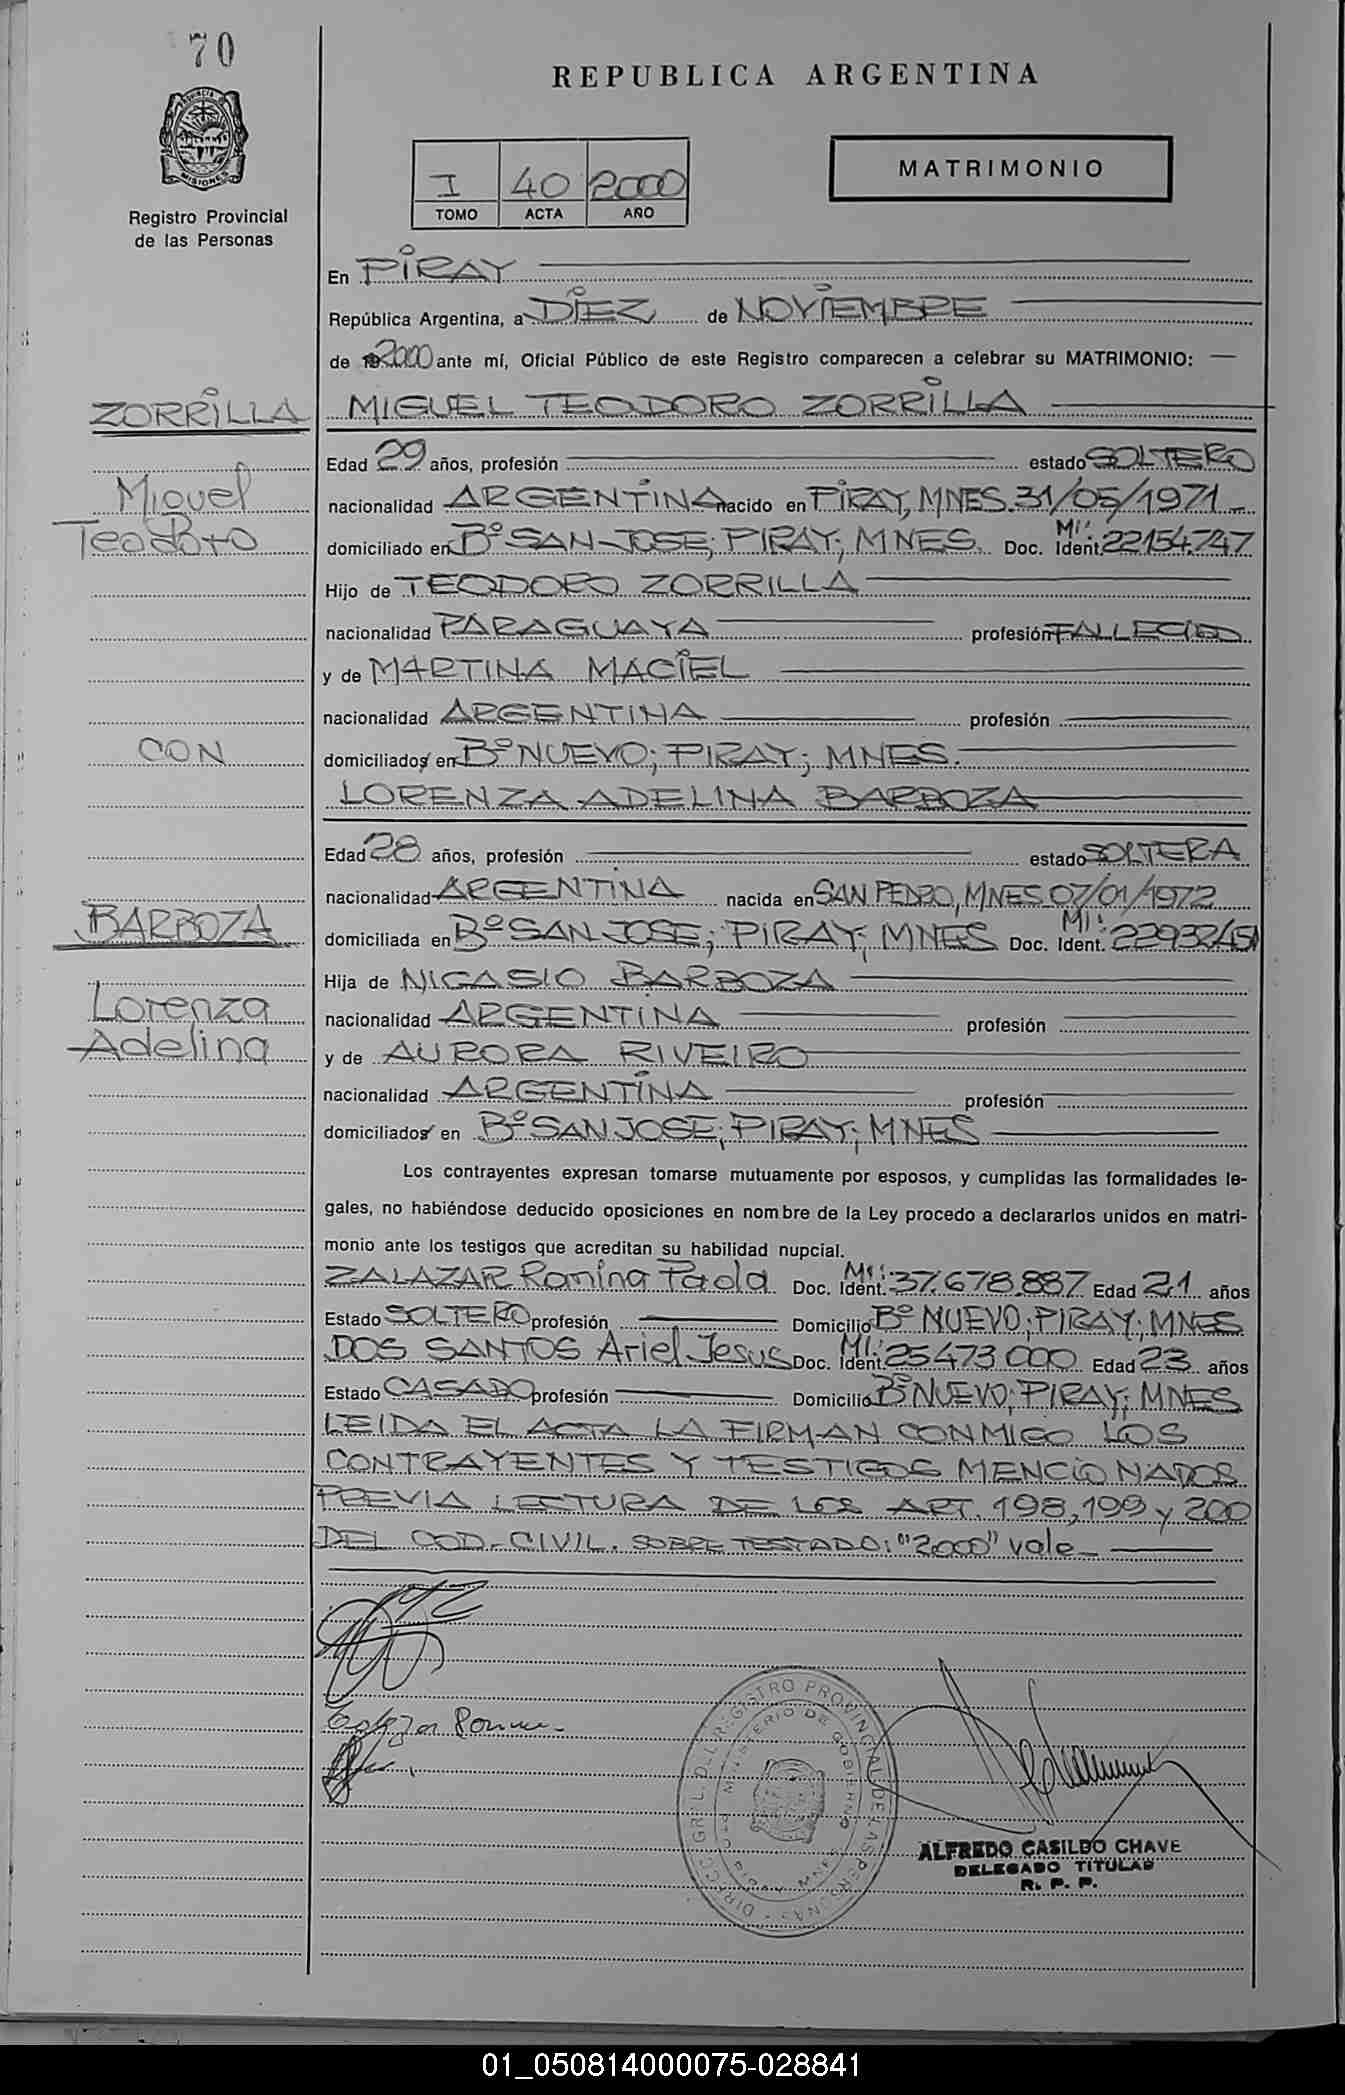 70
REPUBLICA ARGENTINA
PROVINCIA DE
MISIONES
Registro Provincial
de las Personas
I 40 2000
TOMO ACTA AÑO
MATRIMONIO
En PIRAY
República Argentina, a DIEZ de NOVIEMBRE
de 2000 ante mí, Oficial Público de este Registro comparecen a celebrar su MATRIMONIO:
ZORRILLA
MIGUEL TEODORO ZORRILLA
Edad 29 años, profesión estado SOLTERO
Miguel
nacionalidad ARGENTINA nacido en PIRAY, MNES. 31/05/1971
Teodoro
domiciliado en Bº SAN JOSE; PIRAY; MNES. Doc. Ident. MI: 22154.747
Hijo de TEODORO ZORRILLA
nacionalidad PARAGUAYA profesión FALLECIDO
y de MARTINA MACIEL
nacionalidad ARGENTINA profesión
CON
domiciliados en Bº NUEVO; PIRAY; MNES.
LORENZA ADELINA BARBOZA
Edad 28 años, profesión estado SOLTERA
nacionalidad ARGENTINA nacida en SAN PEDRO, MNES 07/01/1972
BARBOZA
domiciliada en Bº SAN JOSE; PIRAY; MNES Doc. Ident. MI:
Hija de NICASIO BARBOZA
Lorenza
nacionalidad ARGENTINA profesión
Adelina
y de AURORA RIVEIRO
nacionalidad ARGENTINA profesión
domiciliados en Bº SAN JOSE; PIRAY; MNES
Los contrayentes expresan tomarse mutuamente por esposos, y cumplidas las formalidades le-
gales, no habiéndose deducido oposiciones en nombre de la Ley procedo a declararlos unidos en matri-
monio ante los testigos que acreditan su habilidad nupcial.
ZALAZAR Romina Paola Doc. Ident. MI: 37.678.887 Edad 21 años
Estado SOLTERO profesión Domicilio Bº NUEVO; PIRAY; MNES
DOS SANTOS Ariel Jesus Doc. Ident. MI: 25473000 Edad 23 años
Estado CASADO profesión Domicilio Bº NUEVO; PIRAY; MNES
LEIDA EL ACTA LA FIRMAN CONMIGO LOS
CONTRAYENTES Y TESTIGOS MENCIONADOS
PREVIA LECTURA DE LOS ART. 198, 199 y 200
DEL COD. CIVIL. SOBRE TESTADO: "2000" vale
DIRECC. GRAL. DEL REGISTRO PROVINCIAL DE LAS PERSONAS
MINISTERIO DE GOBIERNO
PIRAY MNES
ALFREDO CASILDO CHAVE
DELEGADO TITULAR
R. P. P.
01_050814000075-028841